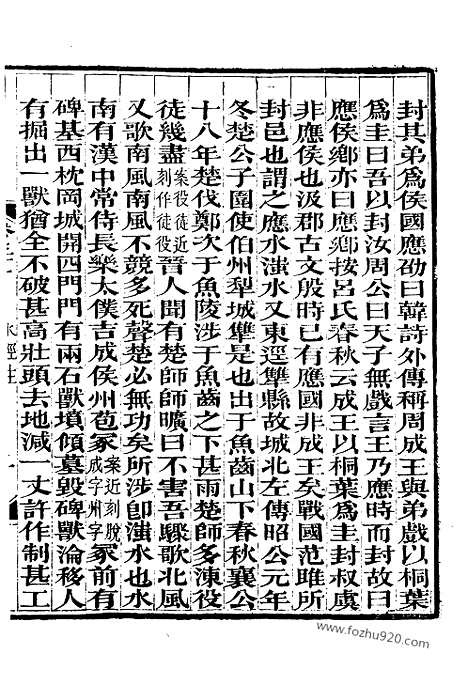 封其弟爲侯國應劭曰韓詩外傳稱周成王與弟戲以桐葉
爲圭曰吾以封汝周公曰天子無戲言王乃應時而封故曰
應侯鄉亦曰應鄉按呂氏春秋云成王以桐葉爲圭封叔虞
非應侯也汲郡古文殷時已有應國非成王矣戰國范雎所
封邑也謂之應水滍水又東逕犨縣故城北左傳昭公元年
冬楚公子圍使伯州犁城犨是也出于魚齒山下春秋襄公
十八年楚伐鄭次于魚陵涉于魚齒之下甚雨楚師多凍役
徒幾盡案役徒近刻作徒役晉人聞有楚師師曠曰不害吾驟歌北風
又歌南風南風不競多死聲楚必無功矣所涉卽滍水也水
南有漢中常侍長樂太僕吉成侯州苞冢案近刻脫成字州字冢前有
碑基西枕岡城開四門門有兩石獸墳傾墓毀碑獸淪移人
有掘出一獸猶全不破甚高壯頭去地減一丈許作制甚工
水經注
www.fozhu920.com